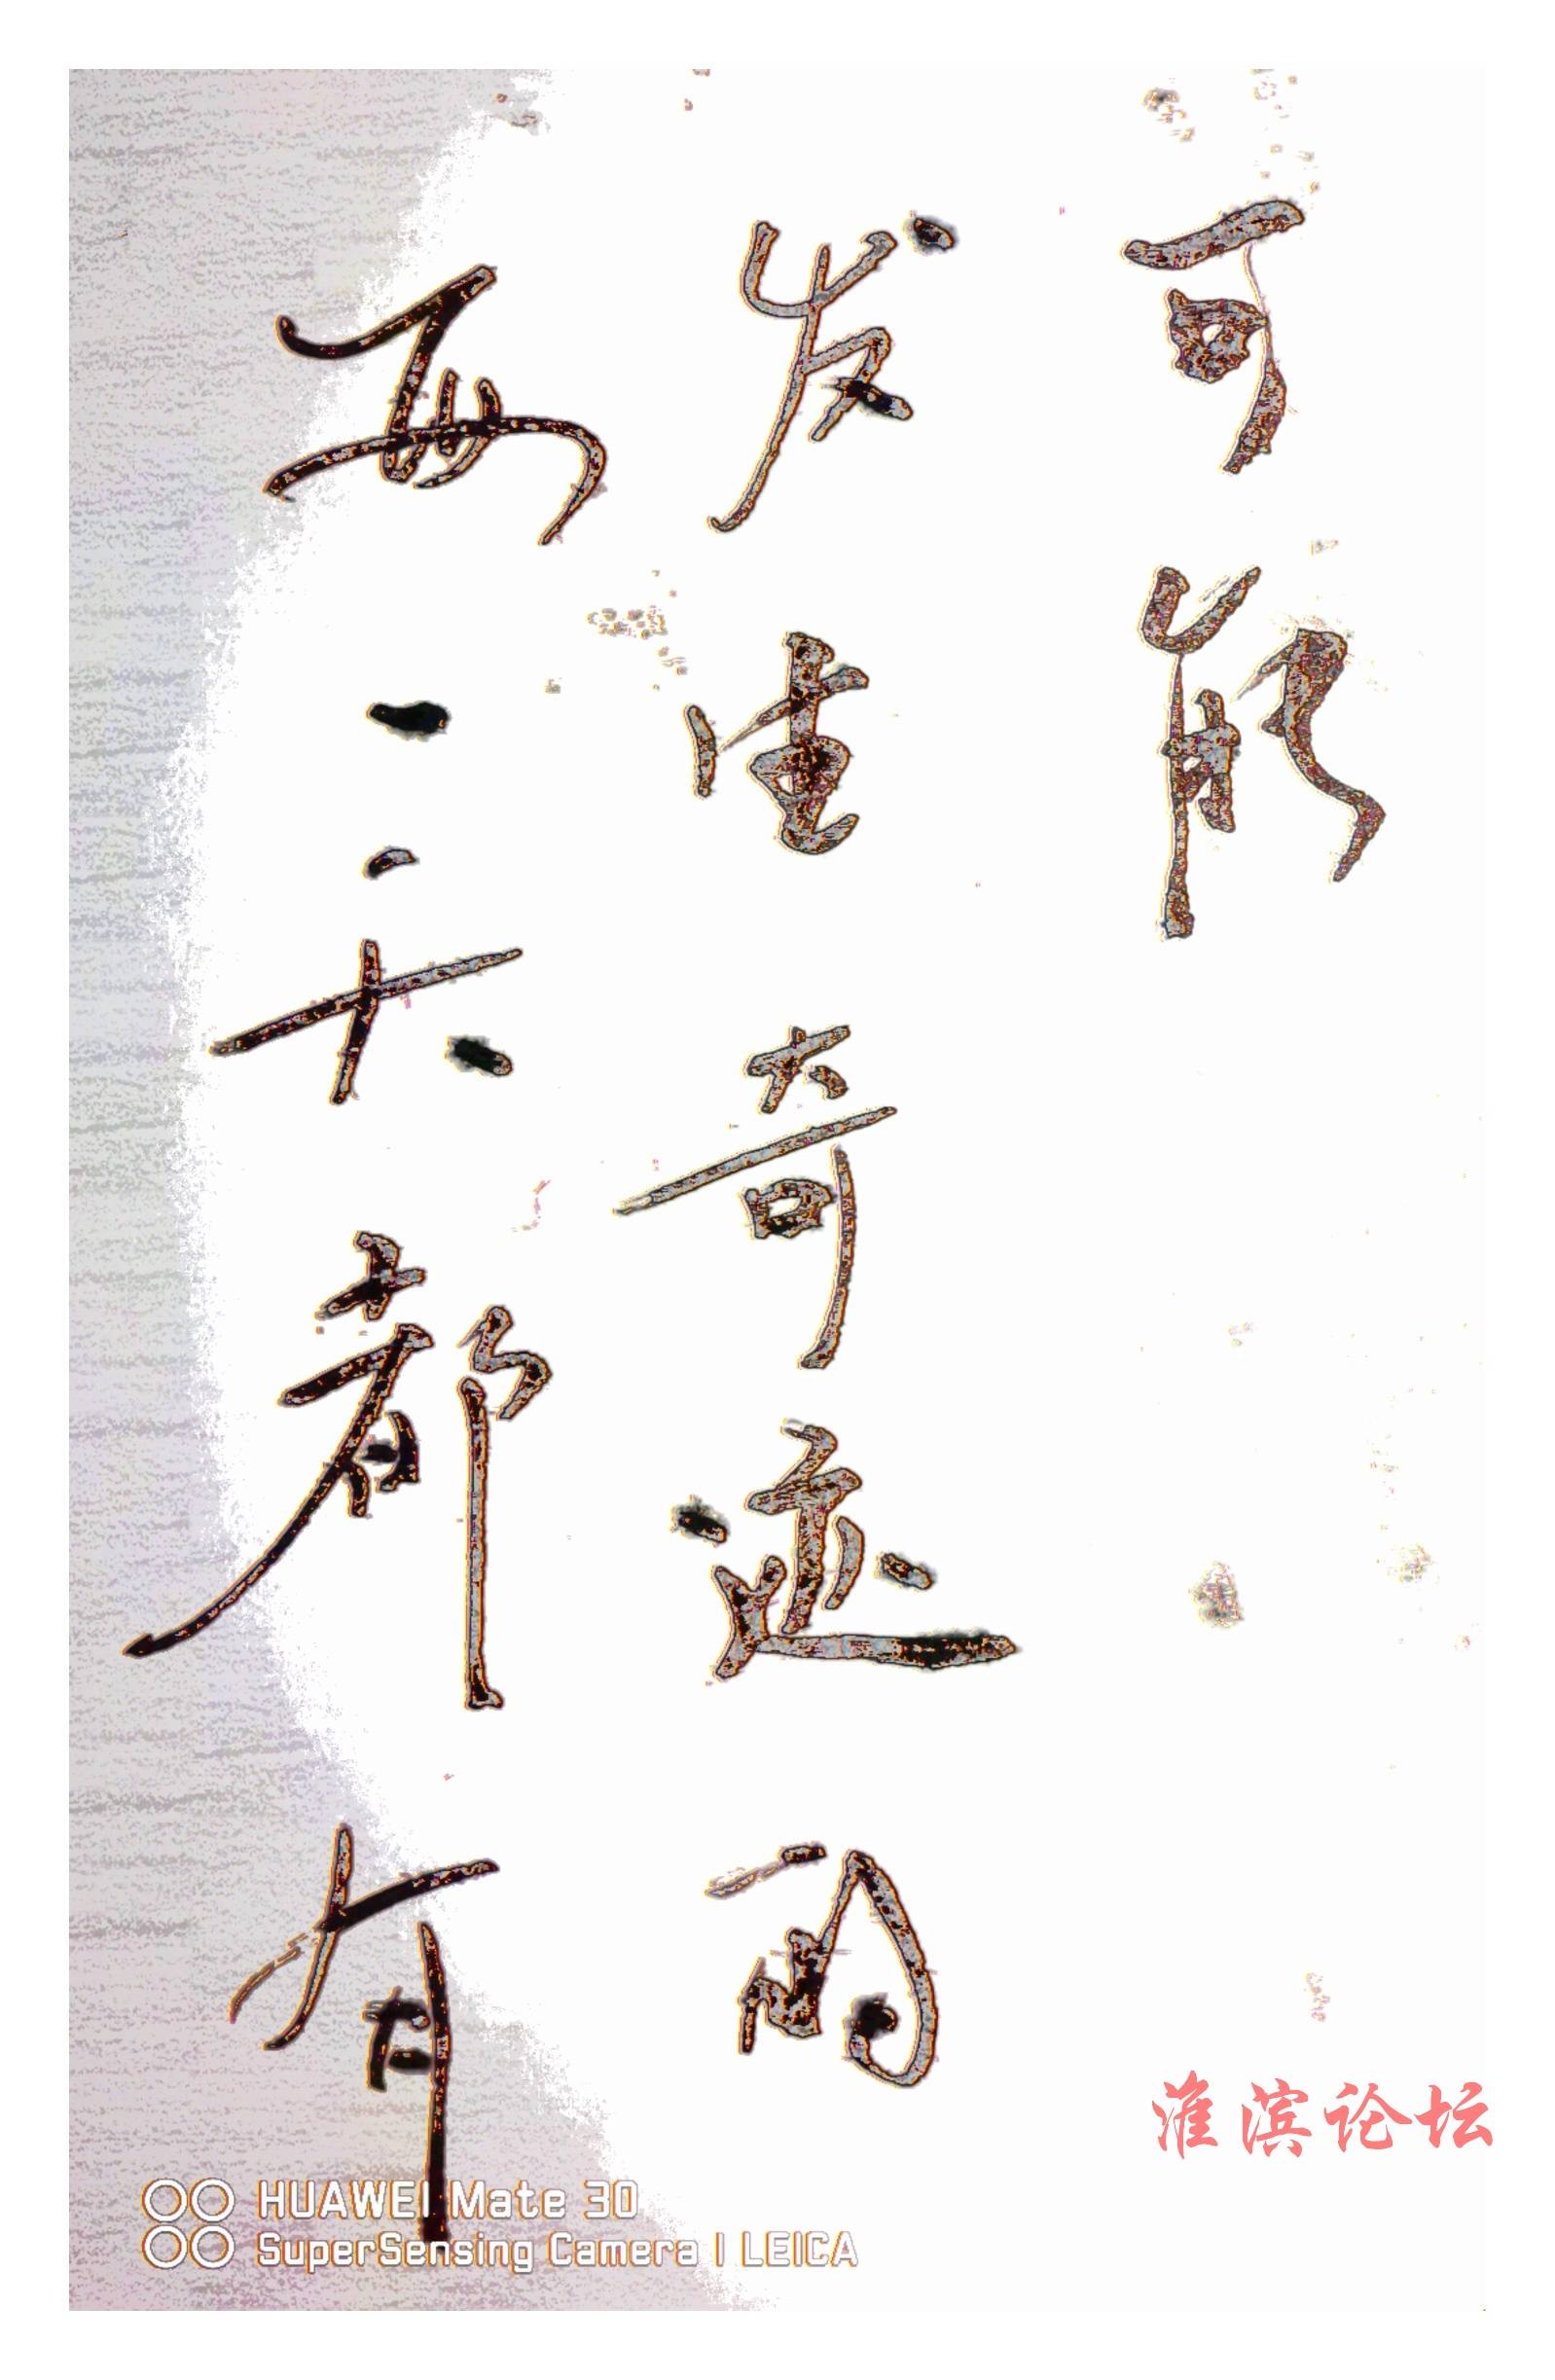 每一天都有
发生奇迹的
可能
淮滨论坛
HUAWEI Mate 30
SuperSensing Camera | LEICA